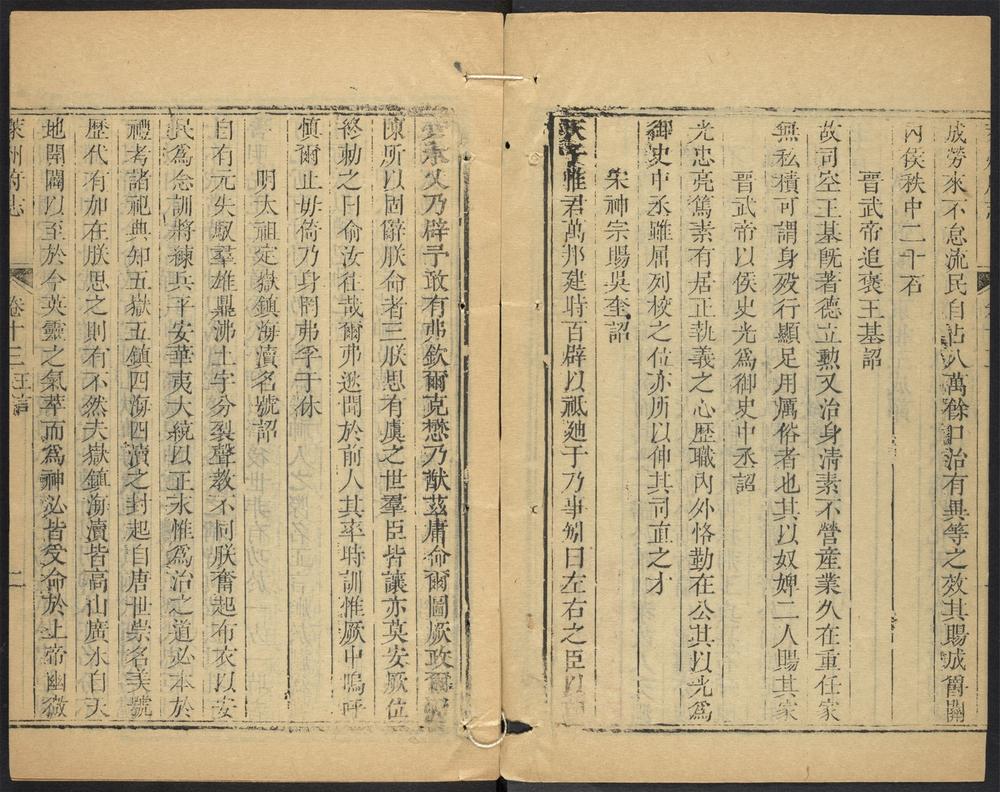 成勞來不怠流民自占八萬餘口治有異等之效其賜成爵關
內侯秩中二千石
晉武帝追褒王基詔
故司空王基既著德立勲又治身清素不營產業久在重任家
無私積可謂身歿行顯足用厲俗者也其以奴婢二人賜其家
晉武帝以侯史光爲御史中丞詔
光忠亮篤素有居正執義之心歷職內外恪勤在公其以光爲
御史中丞雖屈列校之位亦所以伸其司直之才
宋神宗賜吳奎詔
天子惟君萬邦建時百辟以祗廸于乃事矧曰左右之臣以
乃辟予敢有弗欽爾克懋乃猷茲庸命爾圖厥政爾
陳所以固辭朕命者三朕思有虞之世羣臣皆讓亦莫安厥位
終勅之曰俞汝往哉爾弗逖聞於前人其率時訓惟厥中嗚呼
慎爾止毋倚乃身罔弗孚于休
明太祖定嶽鎮海瀆名號詔
自有元失馭羣雄鼎沸土宇分裂聲教不同朕奮起布衣以安
民爲念訓將練兵平安華夷大統以正永惟爲治之道必本於
禮考諸祀典知五嶽五鎮四海四瀆之封起自唐世崇名美號
歷代有加在朕思之則有不然夫嶽鎮海瀆皆高山廣水自天
地開闢以至於今英靈之氣萃而爲神必皆受命於上帝幽微
萊州府志 卷十三 王言 二